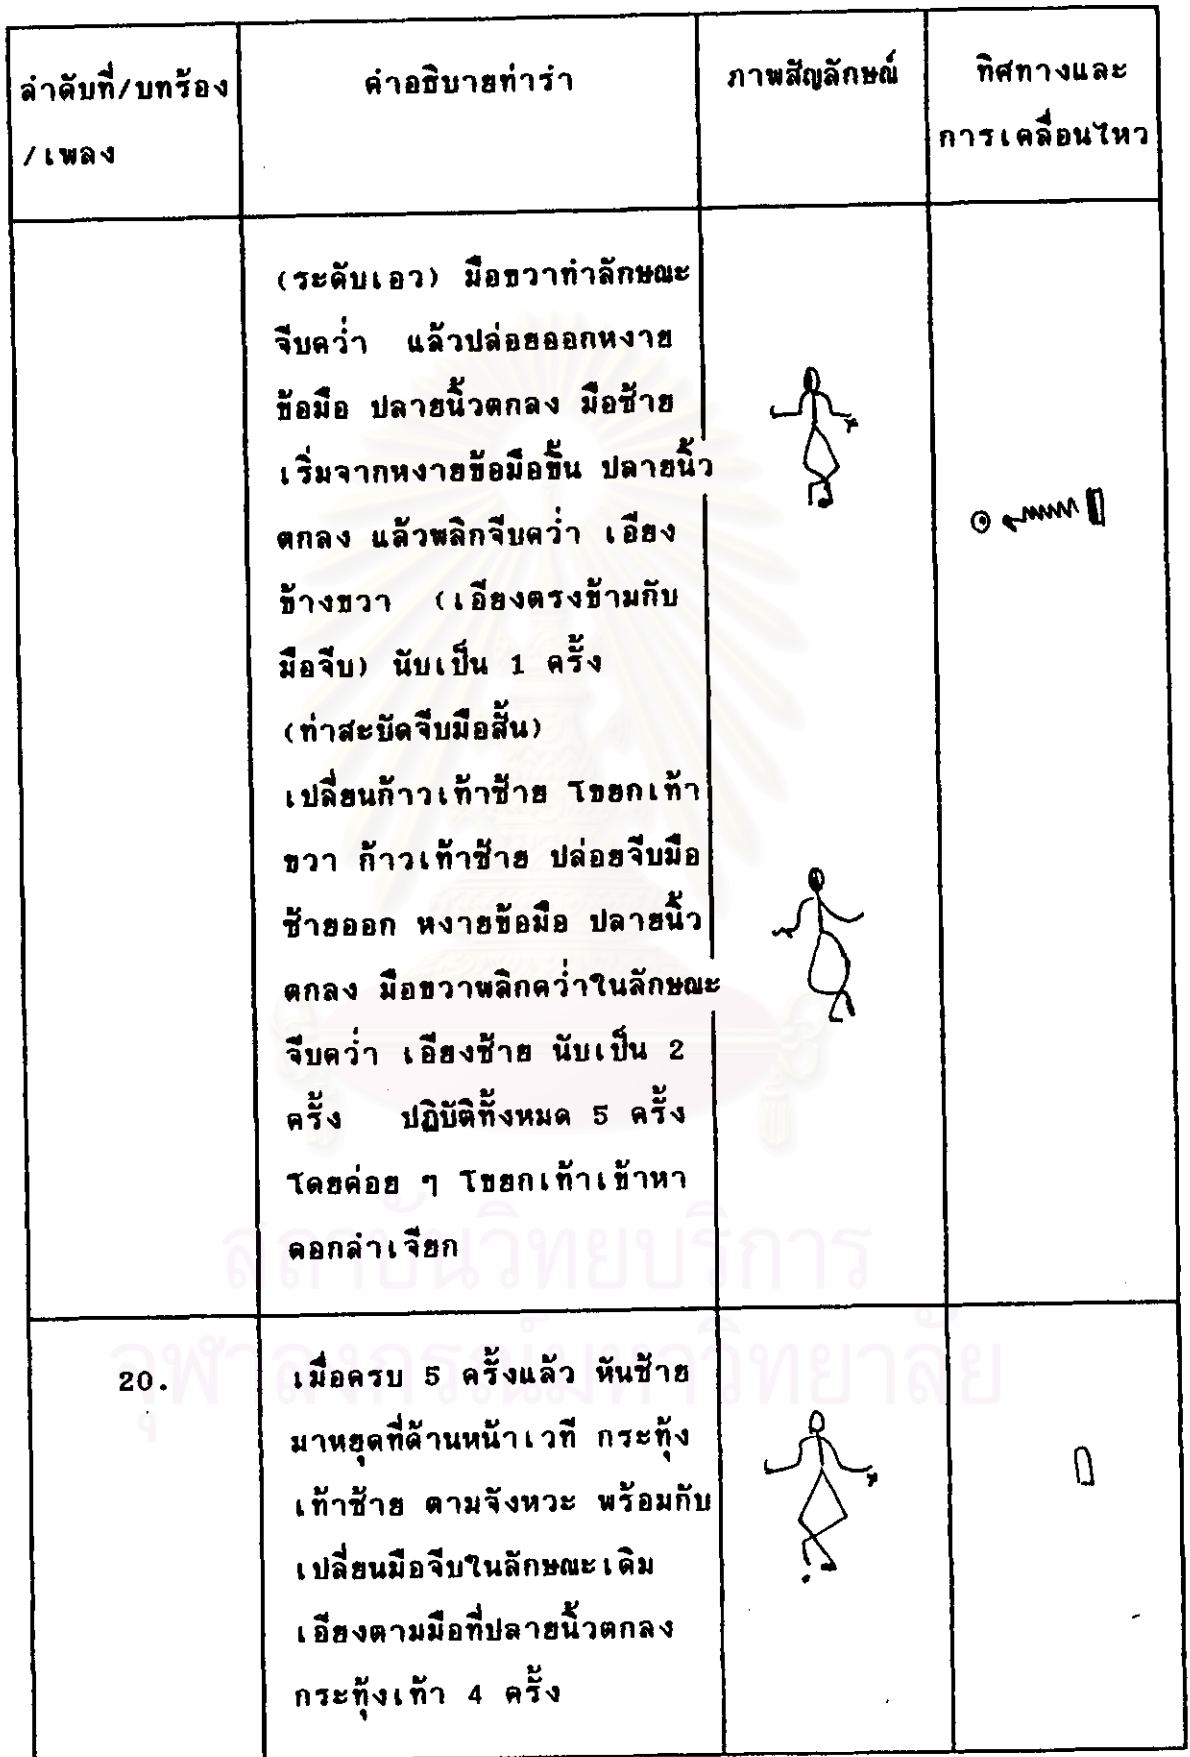 ลำดับที่/บทร้อง
/เพลง
คำอธิบายท่ารำ
ภาพสัญลักษณ์
ทิศทางและ
การเคลื่อนไหว
(ระดับเอว) มือขวาทำลักษณะ
จีบคว่ำ แล้วปล่อยออกหงาย
ข้อมือ ปลายนิ้วตกลง มือซ้าย
เริ่มจากหงายข้อมือขึ้น ปลายนิ้ว
ตกลง แล้วพลิกจีบคว่ำ เอียง
ข้างขวา (เอียงตรงข้ามกับ
มือจีบ) นับเป็น 1 ครั้ง
(ท่าสะบัดจีบมือสั้น)
เปลี่ยนก้าวเท้าซ้าย โขยกเท้า
ขวา ก้าวเท้าซ้าย ปล่อยจีบมือ
ซ้ายออก หงายข้อมือ ปลายนิ้ว
ตกลง มือขวาพลิกคว่ำในลักษณะ
จีบคว่ำ เอียงซ้าย นับเป็น 2
ครั้ง ปฏิบัติทั้งหมด 5 ครั้ง
โดยค่อย ๆ โขยกเท้าเข้าหา
ดอกลำเจียก
20.
เมื่อครบ 5 ครั้งแล้ว หันซ้าย
มาหยุดที่ด้านหน้าเวที กระทุ้ง
เท้าซ้าย ตามจังหวะ พร้อมกับ
เปลี่ยนมือจีบในลักษณะเดิม
เอียงตามมือที่ปลายนิ้วตกลง
กระทุ้งเท้า 4 ครั้ง
สถาบันวิทยบริการ
จุฬาลงกรณ์มหาวิทยาลัย